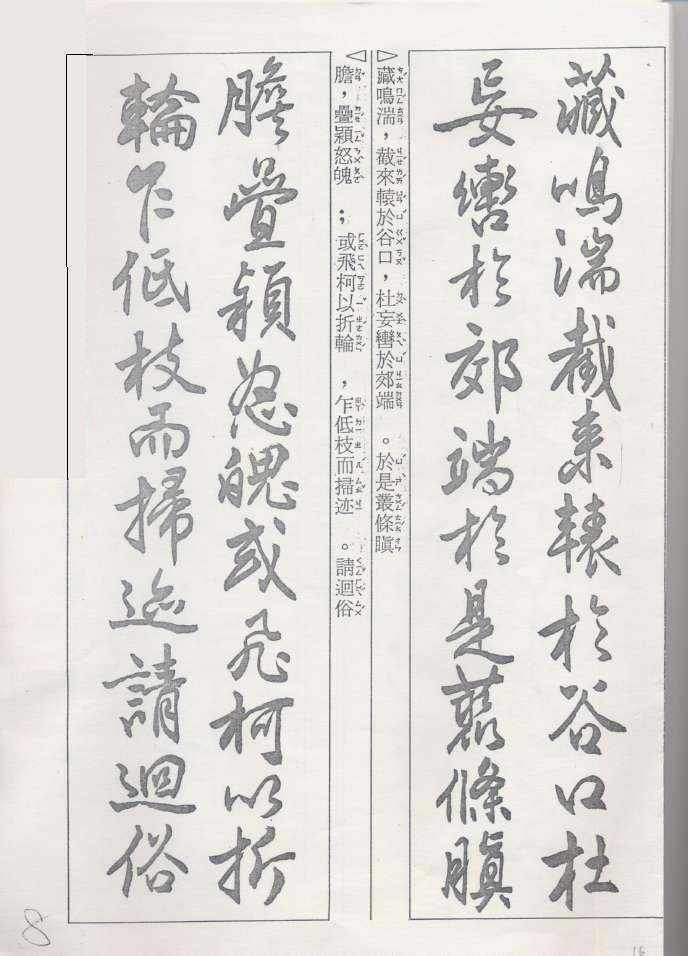 藏鳴湍截来轅於谷口杜
妄轡於郊端於是藂條瞋
藏鳴湍，截來轅於谷口，杜妄轡於郊端 。於是叢條瞋
膽，疊穎怒魄 ；或飛柯以折輪 ，乍低枝而掃迹 。請迴俗
膽疊穎怒魄或飛柯以折
輪乍低枝而掃迹請迴俗
8
16